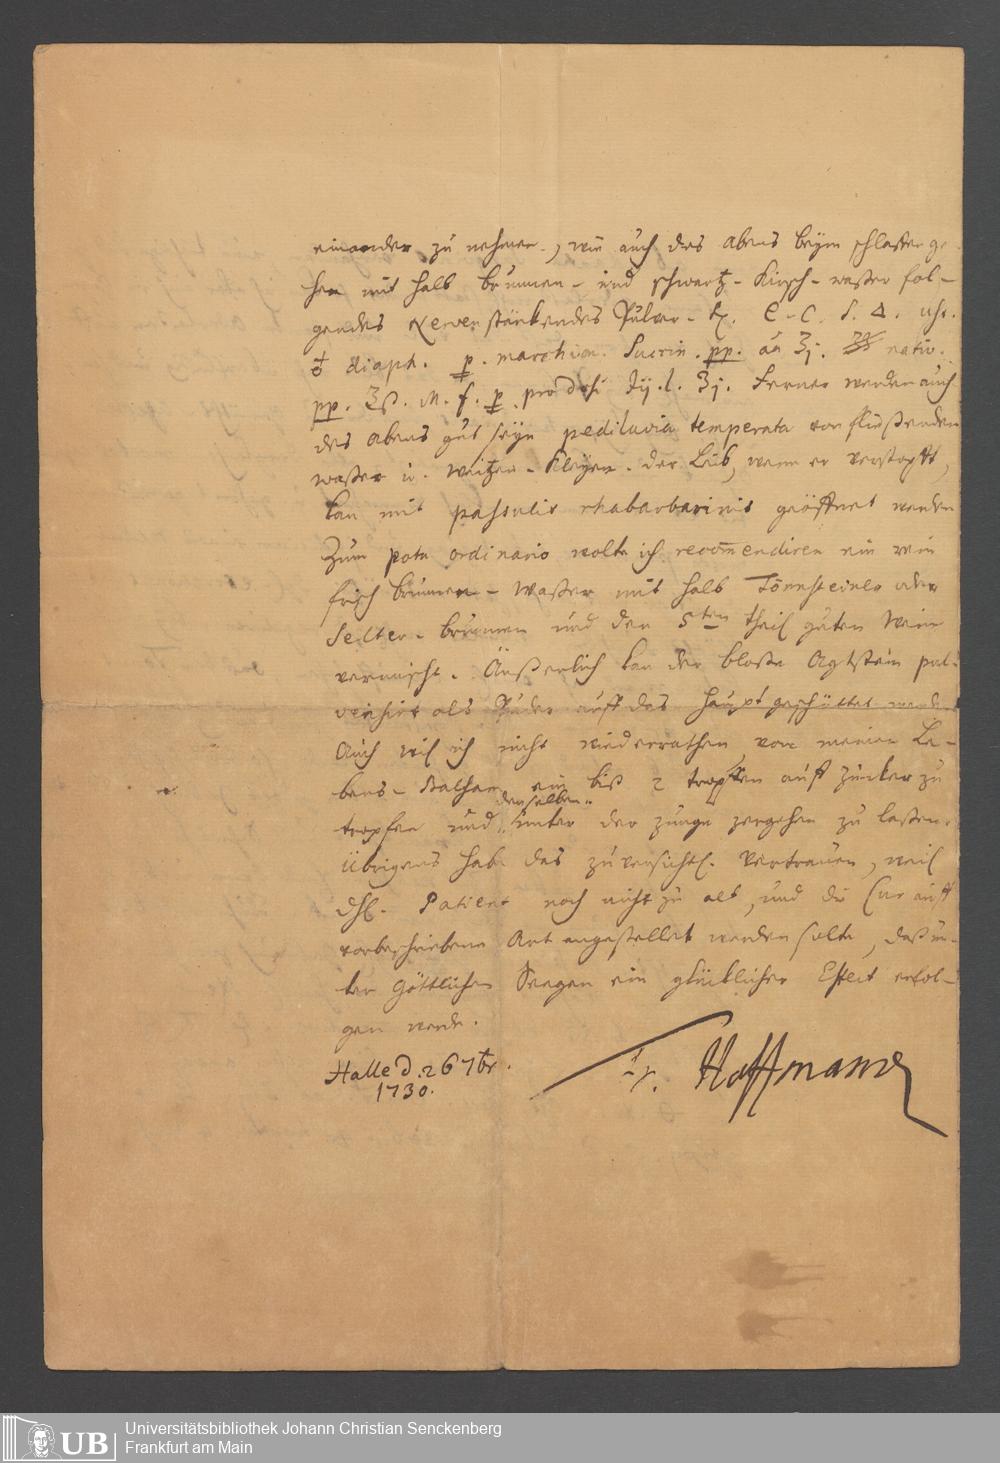 einander zu nehmen, wie auch des abens beym schlaffen ge-
hen mit halb brunnen- und schwartz-Kirsch-waßer fol-
gendes Nerven stärckendes Pulver. C. C. S. Δ. ust.
♁ diaph. p. marchion. Succin. pp. aa ʒj. nativ.
pp. ʒß. M. f. p. pro dosi ℈j. l. ʒj. Ferner werden auch
des abens gut seyn pediluvia temperata von fließenden
waßer u. Weitzen-Kleyen. der Leib, wenn er verstopfft,
kan mit passulis rhabarbarinis geöffnet werden
Zum potu ordinario wolte ich recom̅endiren ein rein
frisch brunnen-Waßer mit halb Tönnsteiner oder
Selter-brunnen und den 5ten theil guten Wein
vermischt. Äußerlich kan der bloße Agtstein pul-
verisirt als Puder auff das Haupt geschüttet werden
Auch wil ich nicht wiederrathen, von meinen Le-
bens-Balsam ein biß 2 tropffen auff Zucker zu
tropfen und denselben unter der zunge zergehen zu laßen.
Übrigens habe das zuversichtl. Vertrauen, weil
dH. Patient noch nicht zu alt, und die Cur auff
vorbeschriebene Art angestellet werden solte, daß un-
ter Göttlichen Seegen ein glücklicher Effect erfol-
gen werde.
Halle d. 26 7br.
1730.
Fr. Hoffmann
UB
Universitätsbibliothek Johann Christian Senckenberg
Frankfurt am Main